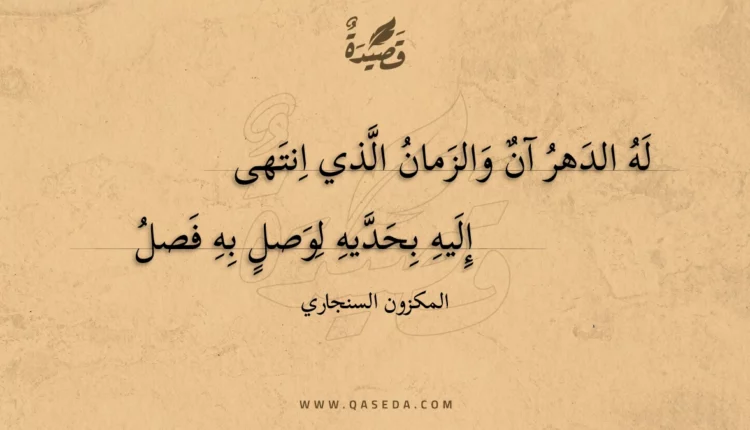 قَصِيْدَةٌ
لَهُ الدَهرُ آنٌ وَالزَمانُ الَّذي اِنتَهى
إِلَيهِ بِحَدَّيهِ لِوَصلٍ بِهِ فَصلُ
المكزون السنجاري
WWW.QASEDA.COM